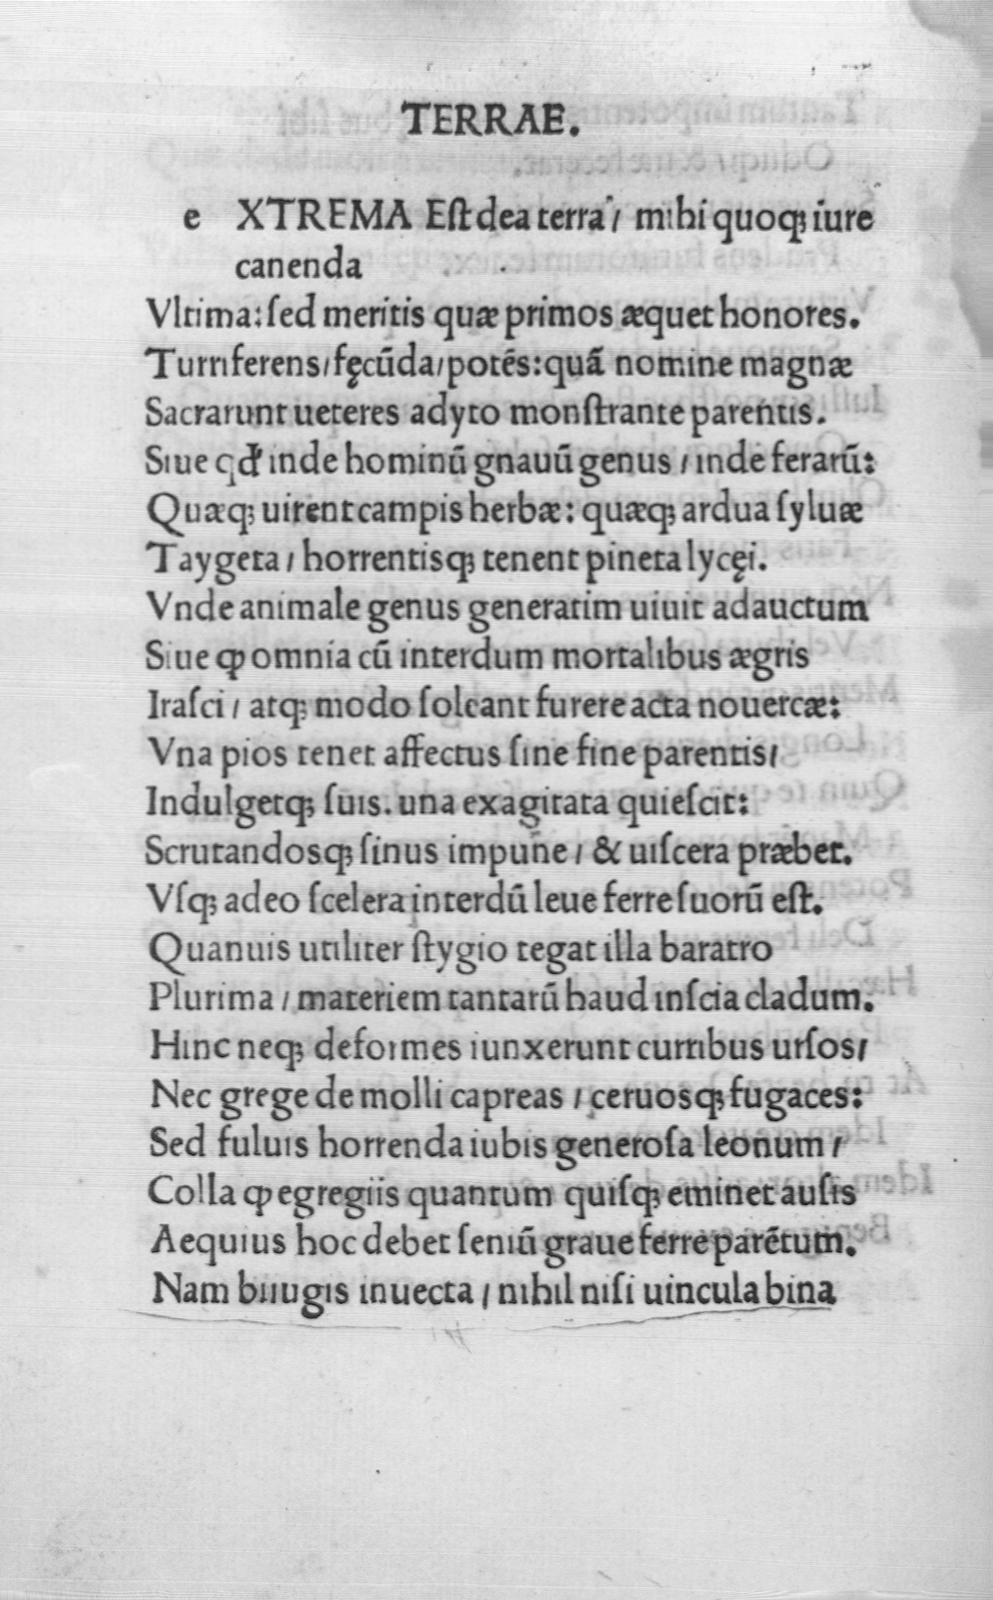 TERRAE.
e XTREMA Eſt dea terra / mihi quoqꝫ iure
canenda
Vltima: ſed meritis quæ primos æquet honores.
Turriferens / fęcūda / potēs: quā nomine magnæ
Sacrarunt ueteres adyto monſtrante parentis.
Siue qđ inde hominū gnauū genus / inde ferarū:
Quæqꝫ uirent campis herbæ: quæqꝫ ardua ſyluæ
Taygeta / horrentisqꝫ tenent pineta lycęi.
Vnde animale genus generatim uiuit adauctum
Siue ꝙ omnia cū interdum mortalibus ægris
Iraſci / atqꝫ modo ſoleant furere acta nouercæ:
Vna pios tenet affectus ſine fine parentis /
Indulgetqꝫ ſuis. una exagitata quieſcit:
Scrutandosqꝫ ſinus impune / & uiſcera præbet.
Vſqꝫ adeo ſcelera interdū leue ferre ſuorū eſt.
Quanuis utiliter ſtygio tegat illa baratro
Plurima / materiem tantarū haud inſcia cladum.
Hinc neqꝫ deformes iunxerunt curribus urſos /
Nec grege de molli capreas / ceruosqꝫ fugaces:
Sed fuluis horrenda iubis generoſa leonum /
Colla ꝙ egregiis quantum quiſqꝫ eminet auſis
Aequius hoc debet ſeniū graue ferre parētum.
Nam biiugis inuecta / nihil niſi uincula bina